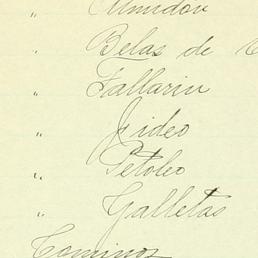 " Almidon
" Belas de
" Tallarin
" Fideo
" Petoleo
" Galletas
Cominos